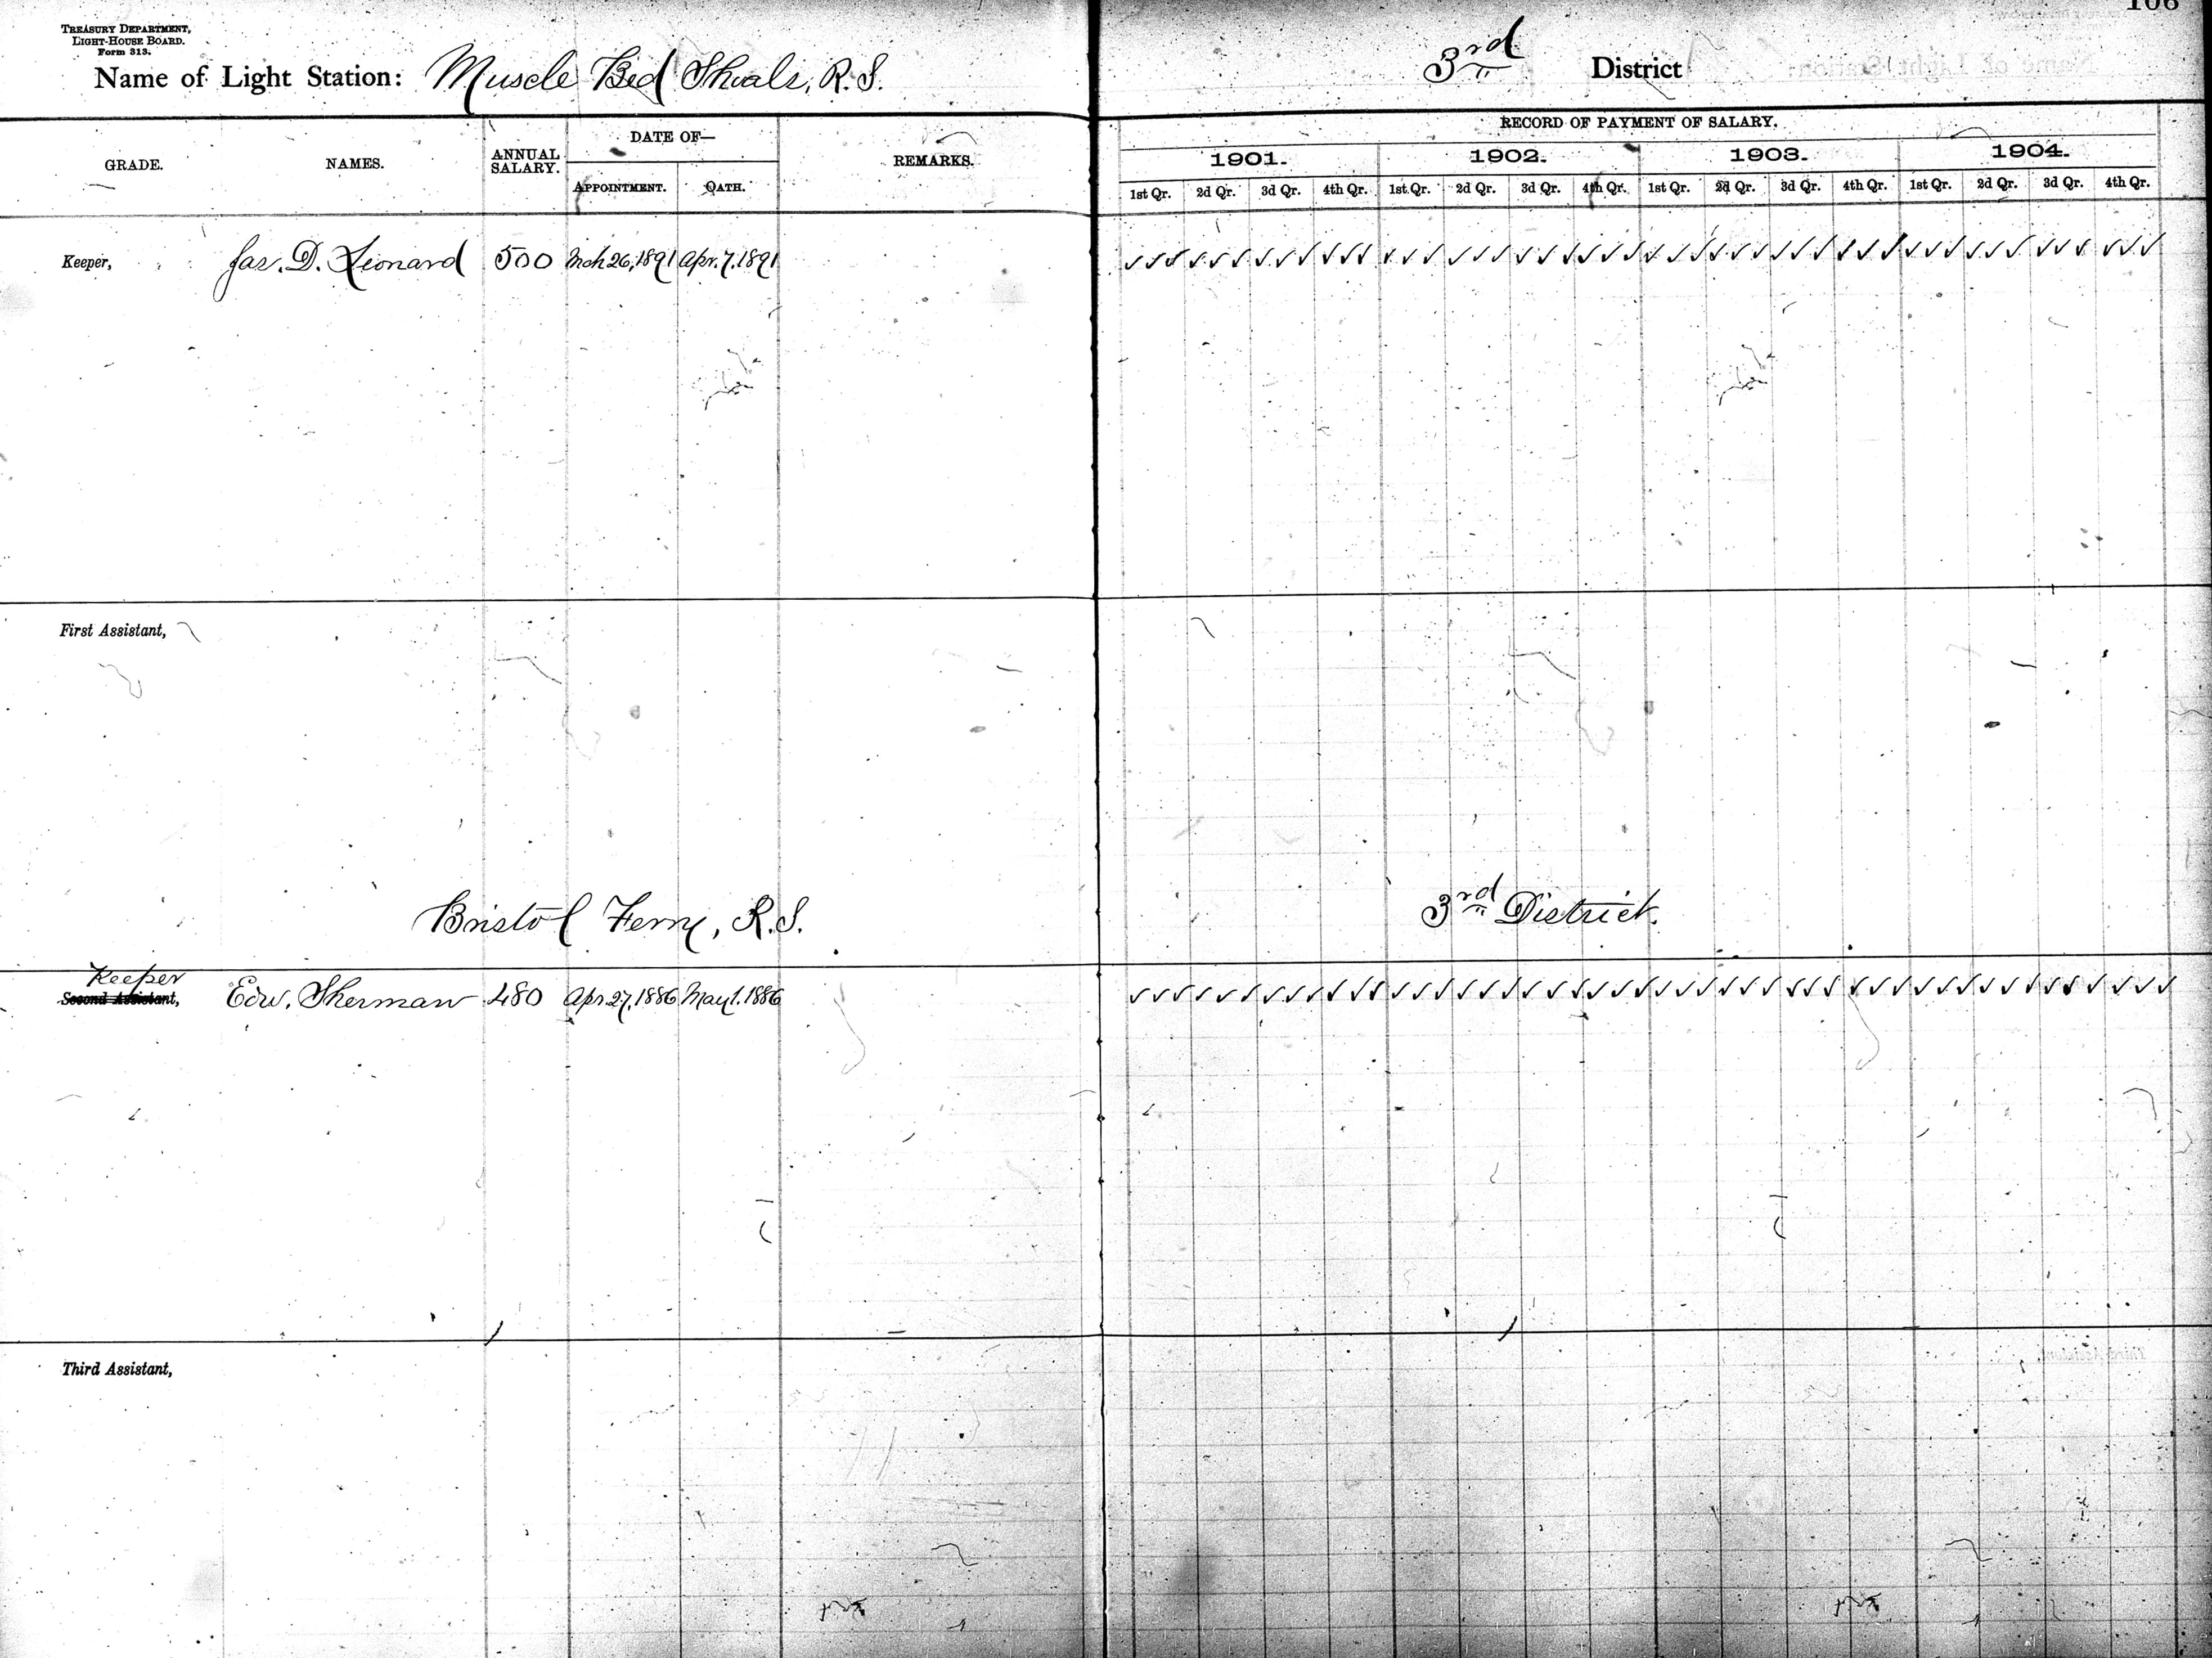 106
TREASURY DEPARTMENT,
LIGHT-HOUSE BOARD.
Form 313.
Name of Light Station: Muscle Bed Shoals, R.I. 3rd District
GRADE. NAMES. ANNUAL SALARY. DATE OF— REMARKS. RECORD OF PAYMENT OF SALARY.
APPOINTMENT. OATH. 1901. 1902. 1903. 1904.
1st Qr. 2d Qr. 3d Qr. 4th Qr. 1st Qr. 2d Qr. 3d Qr. 4th Qr. 1st Qr. 2d Qr. 3d Qr. 4th Qr. 1st Qr. 2d Qr. 3d Qr. 4th Qr.
Keeper, Jas. D. Leonard 500 Mch 26, 1891 Apr. 7, 1891 ✓✓✓ ✓✓✓ ✓✓✓ ✓✓✓ ✓✓✓ ✓✓✓ ✓✓✓ ✓✓✓ ✓✓✓ ✓✓✓ ✓✓✓ ✓✓✓ ✓✓✓ ✓✓✓ ✓✓✓ ✓✓✓
First Assistant,
Bristol Ferry, R.I. 3rd District.
Keeper
Second Assistant, Edw. Sherman 480 Apr. 27, 1886 May 1. 1886 ✓✓✓ ✓✓✓ ✓✓✓ ✓✓✓ ✓✓✓ ✓✓✓ ✓✓✓ ✓✓✓ ✓✓✓ ✓✓✓ ✓✓✓ ✓✓✓ ✓✓✓ ✓✓✓ ✓✓✓ ✓✓✓
Third Assistant,